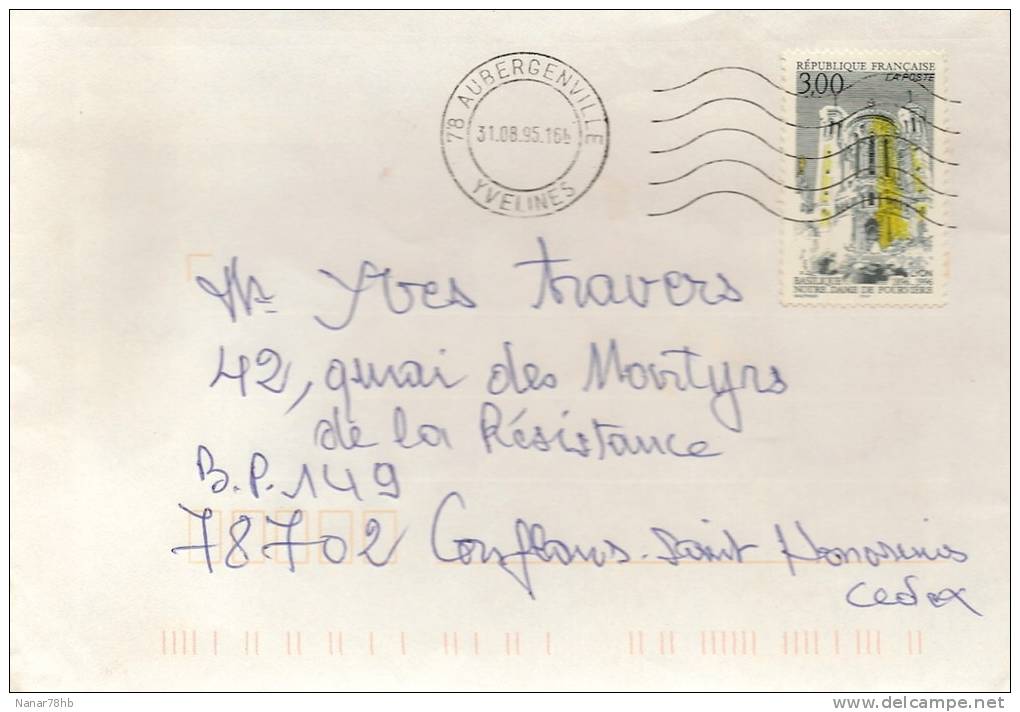 RÉPUBLIQUE FRANÇAISE
LA POSTE
3,00
78 AUBERGENVILLE
31.08.95.16h
YVELINES
LYON
BASILIQUE 1896-1996
NOTRE DAME DE FOURVIÈRE
Mr Yves Travers
42, quai des Martyrs
de la Résistance
B.P. 149
78702 Conflans-Saint Honorine
Cedex
Nanar78hb
delcampe.net